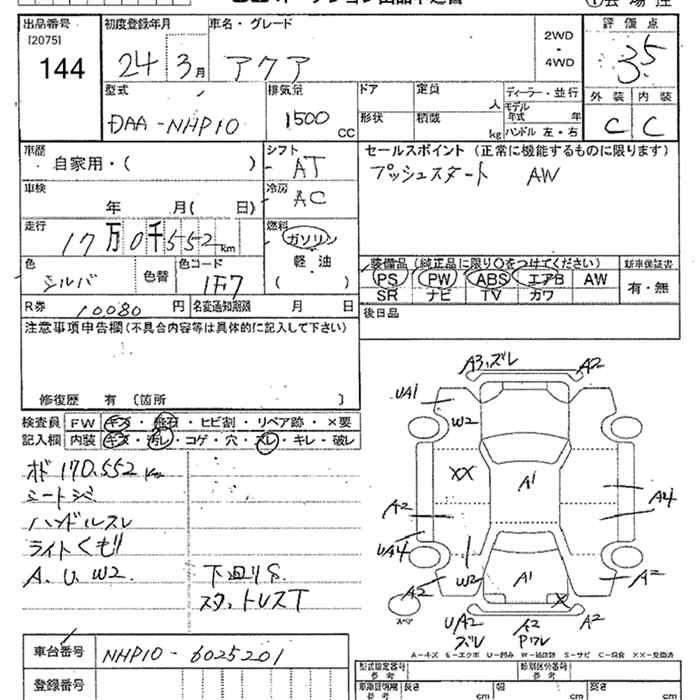 出品番号 初度登録年月 車名・グレード 評価点
[2075]
144
24 3月 アクア 2WD・4WD 3.5
型式 排気量 ドア 定員 人 ディーラー・並行 外装 内装
DAA-NHP10 1500 CC 形状 積載 kg モデル年式 年 ハンドル 左・右 C C
車歴 自家用・( ) シフト AT セールスポイント (正常に機能するものに限ります)
プッシュスタート AW
車検 年 月( 日) 冷房 AC
走行 17万0千552km 燃料 ガソリン 軽・油 ( )
色 シルバ 色替 色コード 1F7
装備品 (純正品に限り○をつけてください) 新車保証書
PS PW ABS エアB AW 有・無
SR ナビ TV カワ
R券 10080円 名変通知期限 月 日 後日品
注意事項申告欄(不具合内容等は具体的に記入して下さい)
修復歴 有 〔箇所 〕
検査員 FW キズ・飛石・ヒビ割・リペア跡・×要
記入欄 内装 キズ・汚レ・コゲ・穴・スレ・キレ・破レ
オド 170.552 Km
シートシミ
ハンドルスレ
ライトくもり
A.U.W2. 下廻りS.
スタットレスT
A3,ズレ A2
UA1
W2
XX A1
A2 A4
UA4
A2 W2 A1 X A2
スペア UA2 ズレ A2 Pワレ A2
A-キズ E-エクボ U-凹み W-補修跡 S-サビ C-腐食 XX-交換済
車台番号 NHP10-6025201
登録番号
型式指定番号 参考 類別区分番号 参考
車両明細 参考 長さ cm 幅 cm 高さ cm